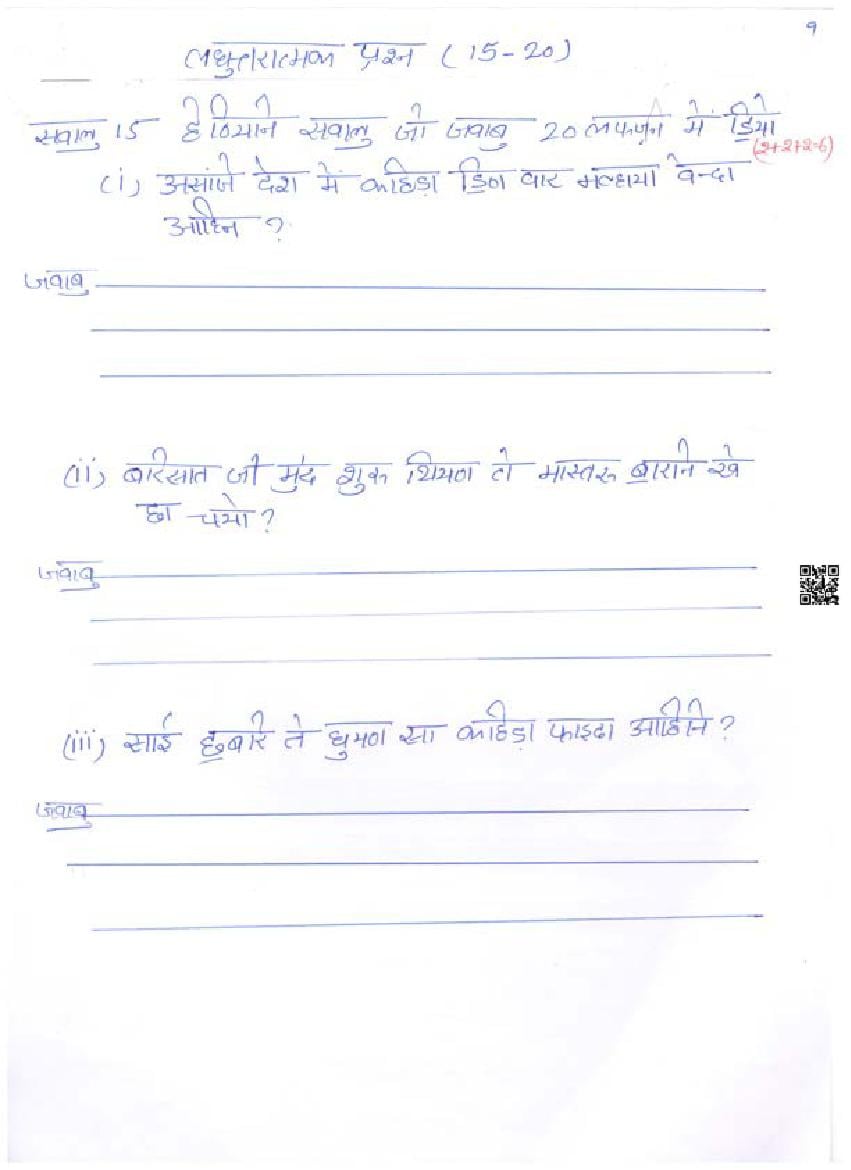 9
लघुत्तरात्मक प्रश्न (15-20)
सवालु 15 हेठियनि सवालु जो जवाबु 20 लफ़्ज़नि में डि॒यो
(2+2+2=6)
(i) असांजे देश में कहिड़ा डि॒ण वार मल्हाया वेन्दा
आहिनि ?
जवाबु
(ii) बरिसात जी मुंद शुरू थियण ते मास्तरु बा॒रनि खे
छा चयो?
जवाबु
(iii) साई छ॒बरि ते घुमण सा कहिड़ा फाइदा आहिनि ?
जवाबु